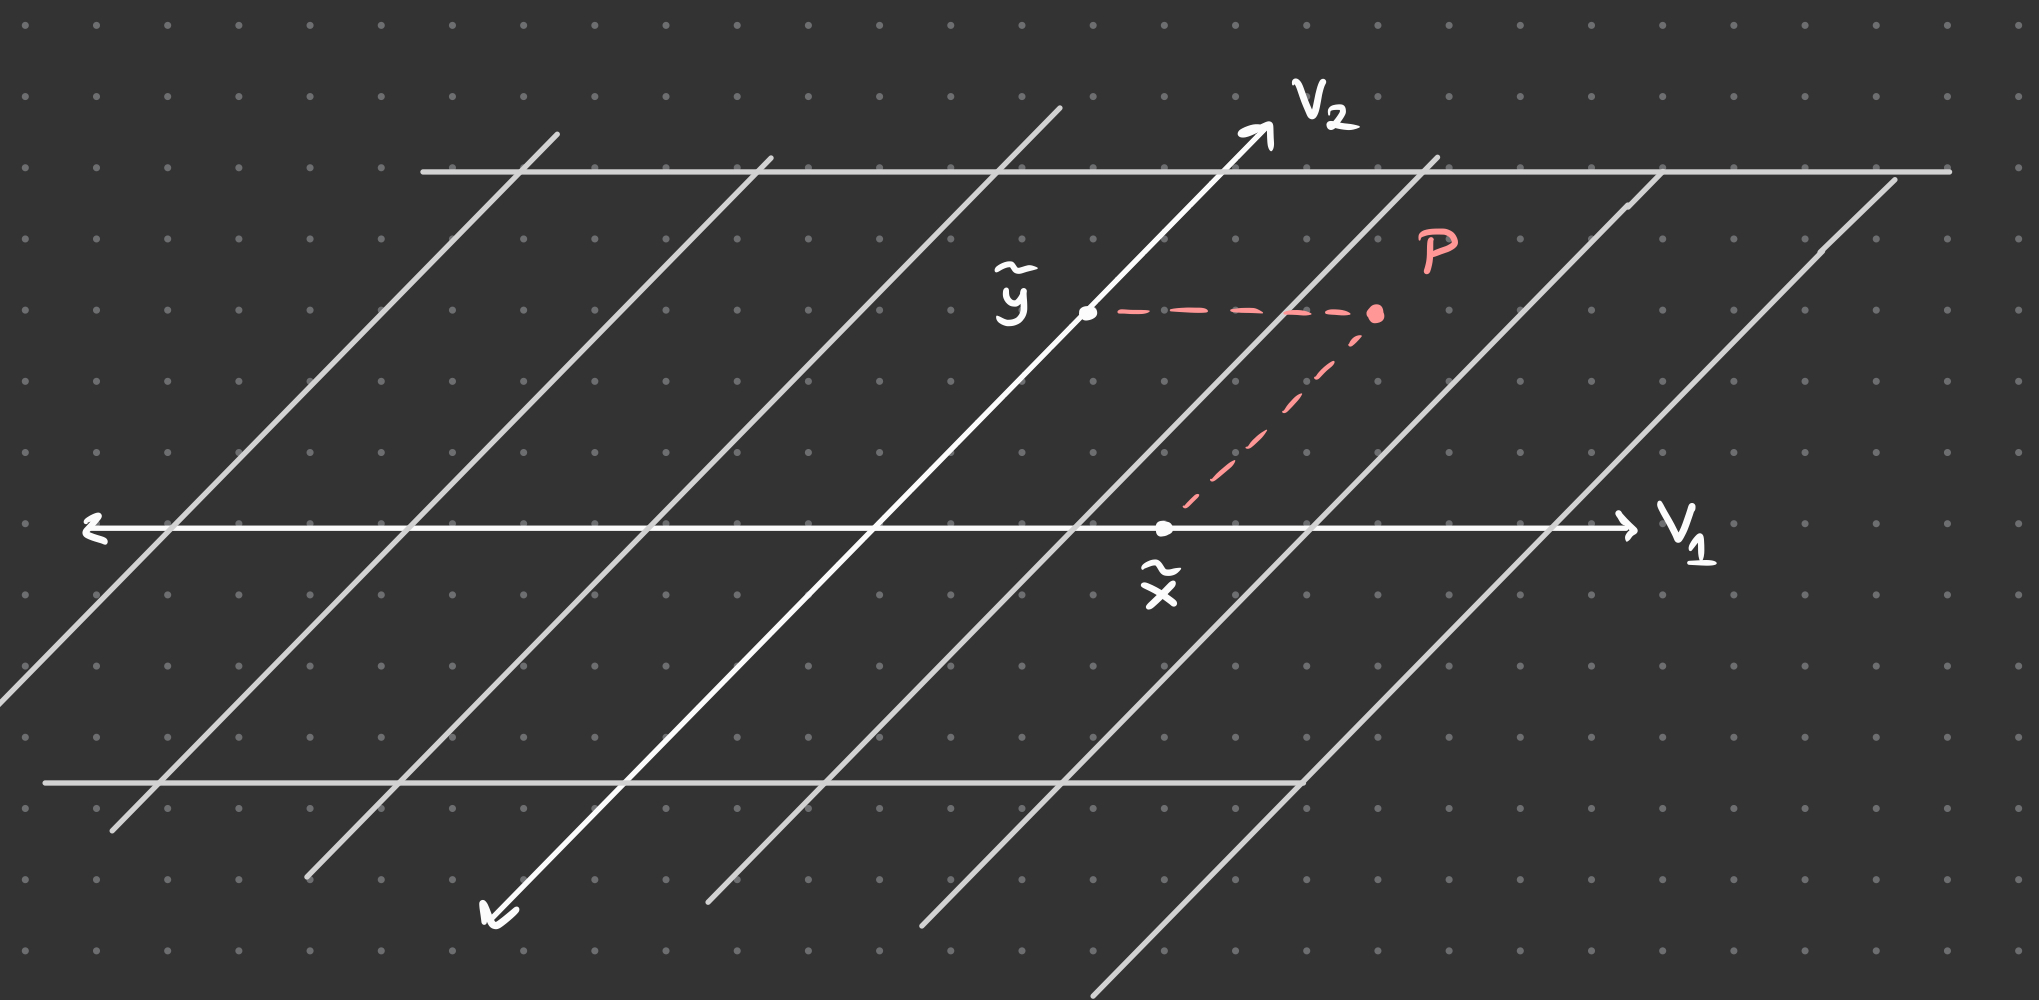 V₂
P
ỹ
V₁
x̃